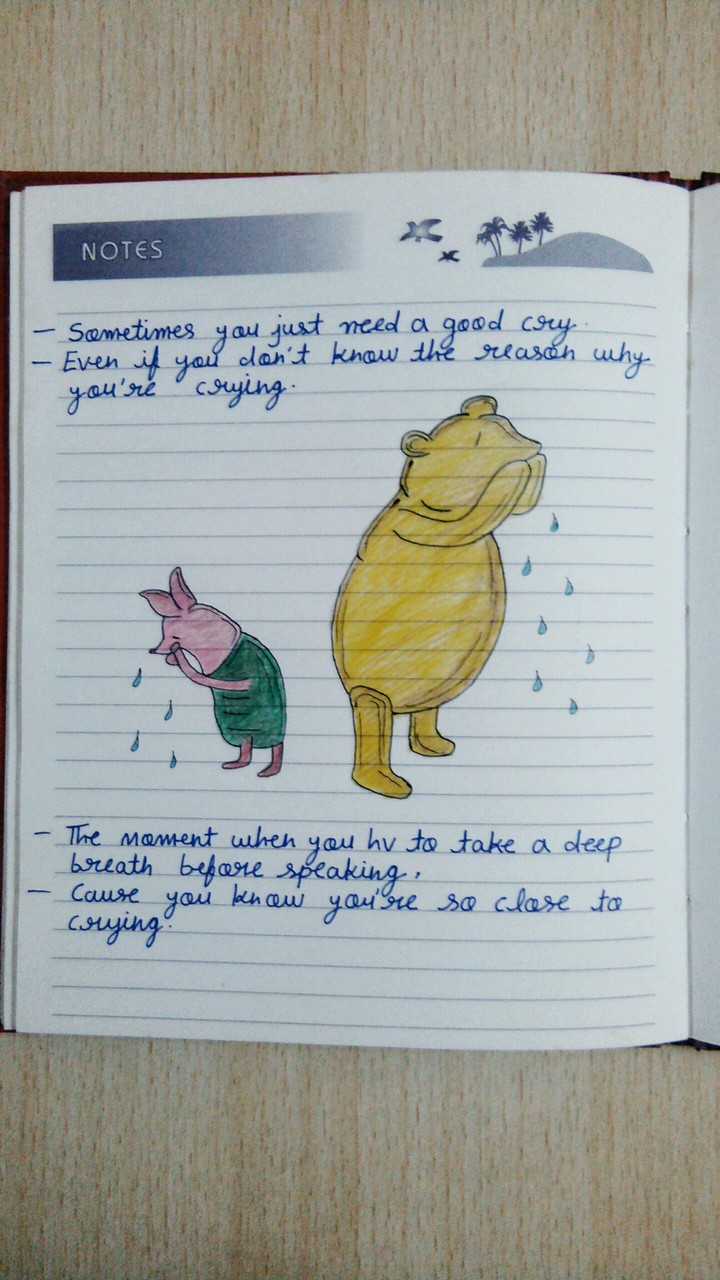 NOTES
— Sometimes you just need a good cry.
— Even if you don't know the reason why
you're crying.
— The moment when you hv to take a deep
breath before speaking.
— Cause you know you're so close to
crying.